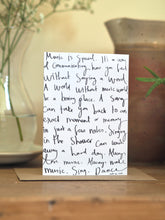 Music is Sound. It's a way
of Communicating how you feel
without saying a word.
A World without music would
be a boring place. A Song
can take you back to an
exact moment or memory
in just a few notes. Singing
in the Shower can wash
away a hard day. Always
hear music. Always make
music. Sing. Dance